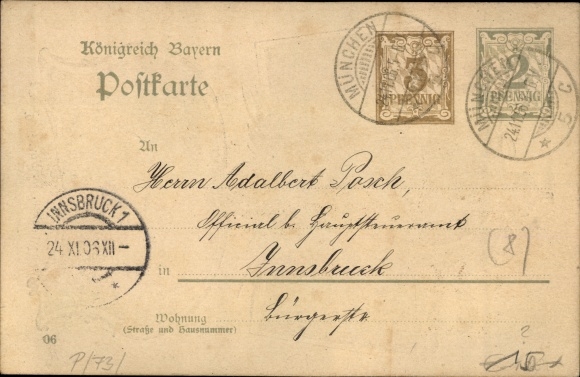 Königreich Bayern
Postkarte
MÜNCHEN
3
PFENNIG
MÜNCHEN
2
PFENNIG
An
Herrn Adalbert Posch,
Official b. Hauptsteueramt
(8)
INNSBRUCK 1
24.XI.06 XII-
*
in Innsbruck
Wohnung
(Straße und Hausnummer)
Bürgerstr.
06
P/73/
?
15